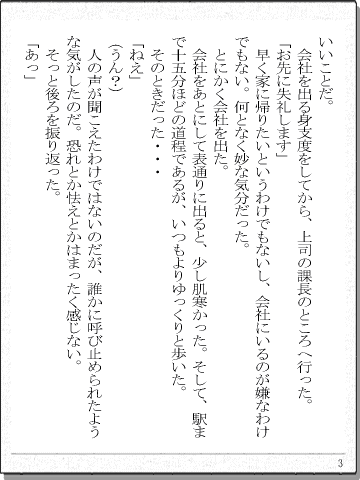 いいことだ。
　会社を出る身支度をしてから、上司の課長のところへ行った。
「お先に失礼します」
　早く家に帰りたいというわけでもないし、会社にいるのが嫌なわけ
でもない。何となく妙な気分だった。
　とにかく会社を出た。
　会社をあとにして表通りに出ると、少し肌寒かった。そして、駅ま
で十五分ほどの道程であるが、いつもよりゆっくりと歩いた。
　そのときだった・・・
「ねえ」
（うん？）
　人の声が聞こえたわけではないのだが、誰かに呼び止められたよう
な気がしたのだ。恐れとか怯えとかはまったく感じない。
　そっと後ろを振り返った。
「あっ」
3